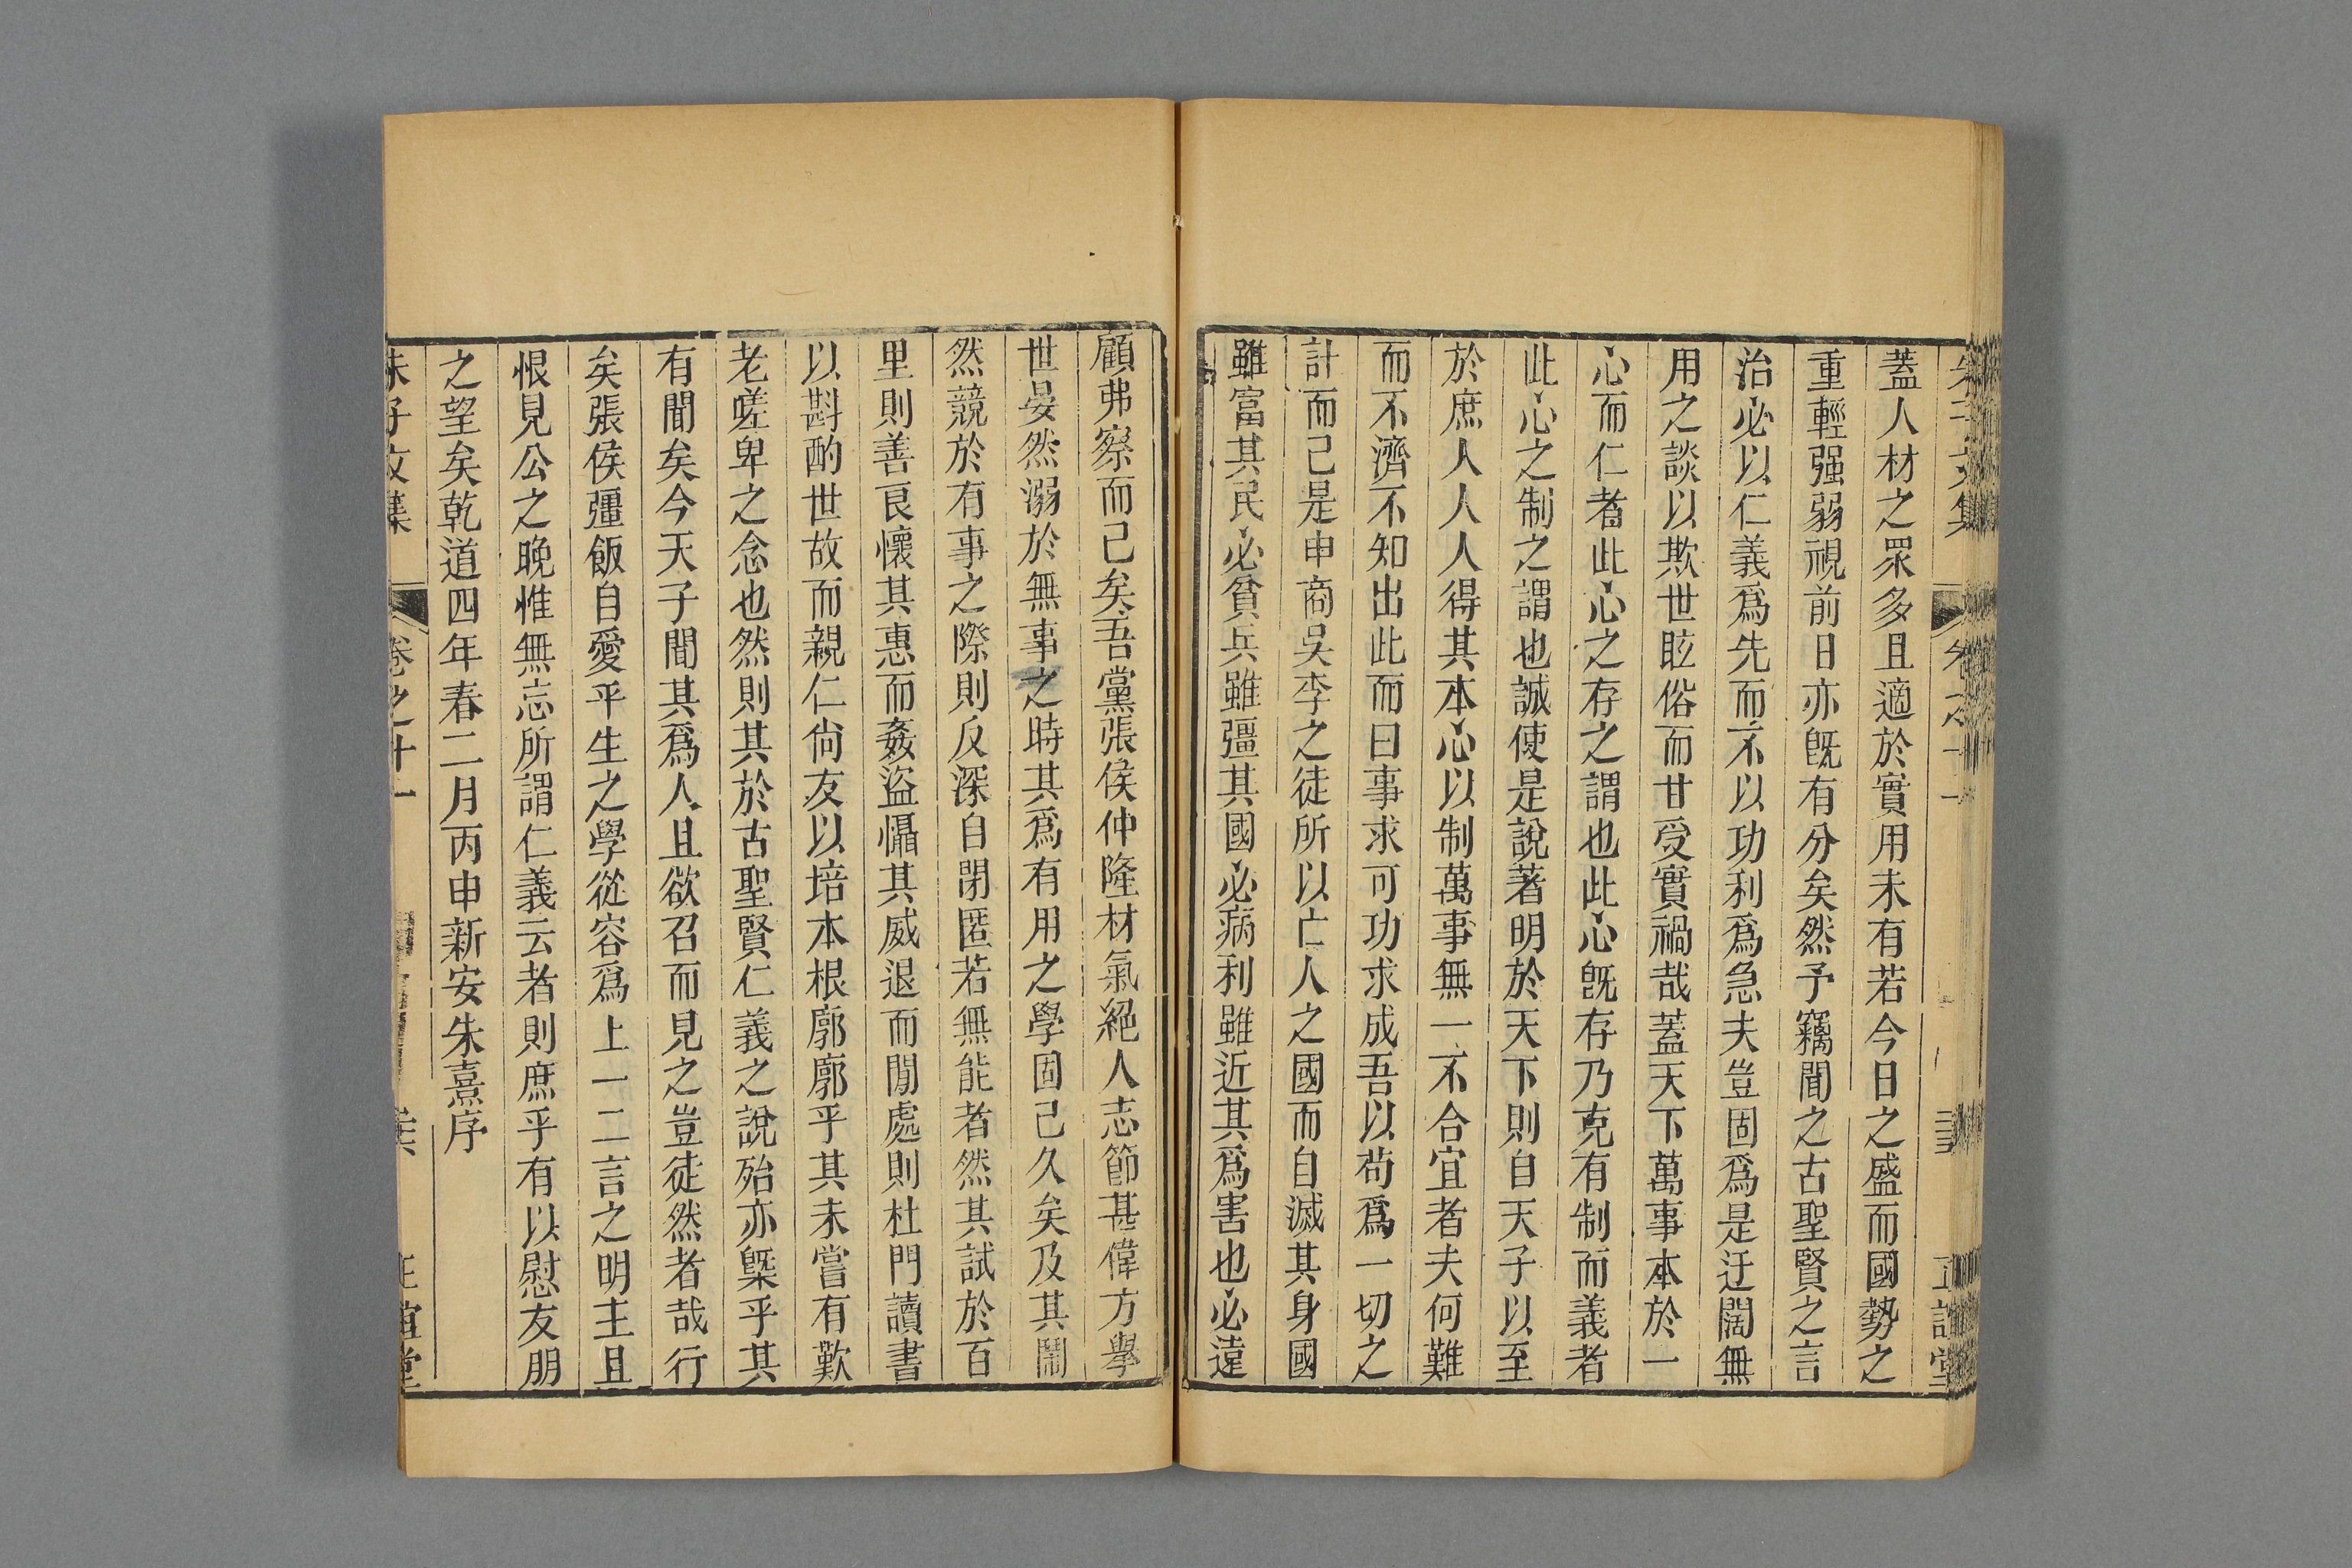 蓋人材之眾多且適於實用未有若今日之盛而國勢之
重輕强弱視前日亦旣有分矣然予竊聞之古聖賢之言
治必以仁義爲先而不以功利爲急夫豈固爲是迂闊無
用之談以欺世眩俗而甘受實禍哉蓋天下萬事本於一
心而仁者此心之存之謂也此心旣存乃克有制而義者
此心之制之謂也誠使是說著明於天下則自天子以至
於庶人人人得其本心以制萬事無一不合宜者夫何難
而不濟不知出此而曰事求可功求成吾以苟爲一切之
計而已是申商吳李之徒所以亡人之國而自滅其身國
雖富其民必貧兵雖彊其國必病利雖近其爲害也必遠
顧弗察而已矣吾黨張侯仲隆材氣絕人志節甚偉方擧
世晏然溺於無事之時其爲有用之學固已久矣及其鬧
然競於有事之際則反深自閉匿若無能者然其試於百
里則善良懷其惠而姦盜懾其威退而閒處則杜門讀書
以斟酌世故而親仁尙友以培本根廓廓乎其未嘗有歎
老嗟卑之念也然則其於古聖賢仁義之說殆亦槩乎其
有聞矣今天子聞其爲人且欲召而見之豈徒然者哉行
矣張侯彊飯自愛平生之學從容爲上一二言之明主且
恨見公之晚惟無忘所謂仁義云者則庶乎有以慰友朋
之望矣乾道四年春二月丙申新安朱熹序
朱子文集 卷之十一 正誼堂